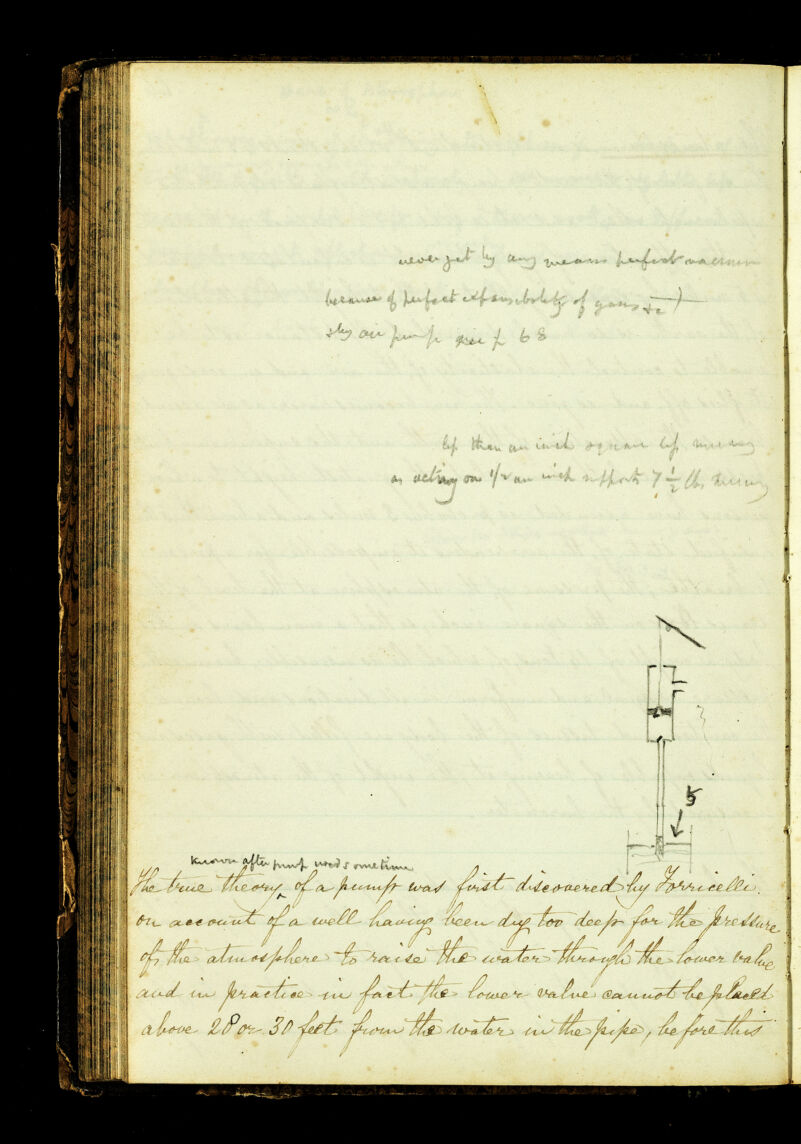 never get by any means perfect vacuum
because of perfect expansibility of gases &c
& by air pump see p 68
less than an inch square less mercury
as acting on 1/2 an inch supports 7 1/2 lbs mercury
15
known after pump used sometime
The true theory ^ of a pump was first discovered by Torricelli.
on account of a well having been dug too deep for the pressure
of the atmosphere to raise the water through the lower valve
and in practice in fact the lower valve cannot be placed
above 28 or 30 feet from the water in the pipe, before this